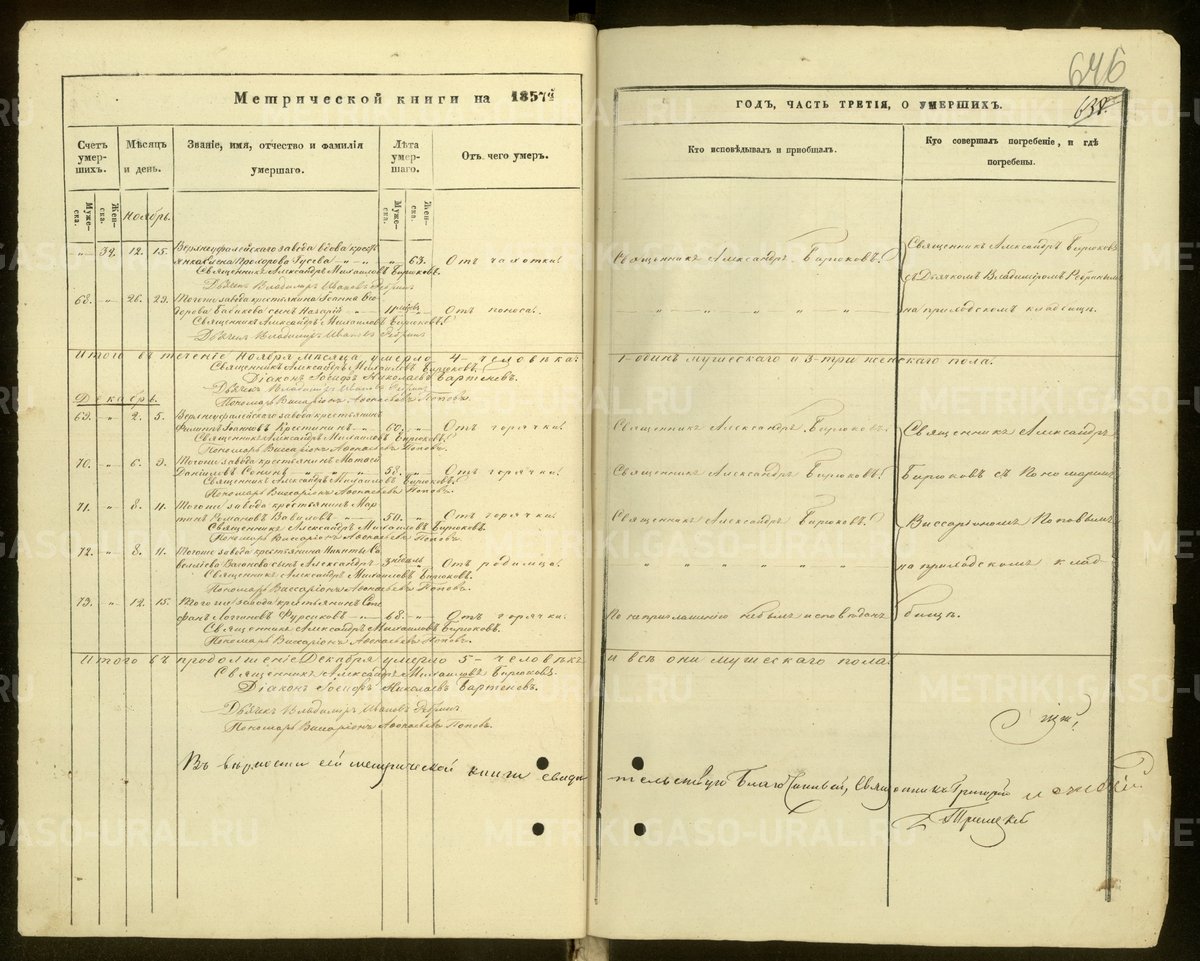 646
638.
Метрической книги на 1857й
ГОДЪ, ЧАСТЬ ТРЕТІЯ, О УМЕРШИХЪ.
Счетъ умерших.
Мѣсяцъ и день.
Званіе, имя, отчество и фамилія умершаго.
Лѣта умершаго.
Отъ чего умеръ.
Кто исповѣдывалъ и пріобщалъ.
Кто совершалъ погребеніе, и гдѣ погребены.
Мужеска.
Женска.
Ноябрь.
Мужеска.
Женска.
„ 34. 12. 15. Верхнеуфалейскаго завода вдова крестьянка Елена Прохорова Гусева „ 63. Отъ чахотки. Священникъ Александръ Бирюковъ.
Священникъ Александръ Михаиловъ Бирюковъ.
Дьячекъ Владимиръ Ивановъ Ребринъ
Священникъ Александръ Бирюковъ
съ Дьячкомъ Владимiромъ Ребринымъ
на приходскомъ кладбищѣ.
68. „ 26. 29. Тогоже завода крестьянина Іоанна Ѳедорова Бабикова сынъ Назарій 11 „ Отъ поноса.
Священникъ Александръ Михаиловъ Бирюковъ.
Дьячекъ Владимиръ Ивановъ Ребринъ
Итого въ теченіе Ноября мѣсяца умерло 4 человѣка: 1-одинъ мужескаго и 3-три женскаго пола.
Священникъ Александръ Михаиловъ Бирюковъ.
Діаконъ Іосифъ Николаевъ Бартеневъ.
Дьячекъ Владимиръ Ивановъ Ребринъ
Пономарь Виссаріонъ Аѳонасьевъ Поповъ.
Декабрь.
69. „ 2. 5. Верхнеуфалейскаго завода крестьянинъ Филиппъ Іоанновъ Крестининъ 60. „ Отъ горячки. Священникъ Александръ Бирюковъ.
Священникъ Александръ Михаиловъ Бирюковъ.
Пономарь Виссаріонъ Аѳонасьевъ Поповъ.
Священникъ Александръ
70. „ 6. 9. Тогоже завода крестьянинъ Матвей Даніиловъ Сонинъ 58. „ Отъ горячки. Священникъ Александръ Бирюковъ.
Священникъ Александръ Михаиловъ Бирюковъ.
Пономарь Виссаріонъ Аѳонасьевъ Поповъ.
Бирюковъ съ Пономаремъ
71. „ 8. 11. Тогоже завода крестьянинъ Мартинъ Романовъ Вавиловъ 50. „ Отъ горячки. Священникъ Александръ Бирюковъ.
Священникъ Александръ Михаиловъ Бирюковъ.
Пономарь Виссаріонъ Аѳонасьевъ Поповъ.
Виссаріономъ Поповымъ
72. „ 8. 11. Тогоже завода крестьянина Никиты сынъ Александръ 3 недѣль „ Отъ родимца.
Священникъ Александръ Михаиловъ Бирюковъ.
Пономарь Виссаріонъ Аѳонасьевъ Попова.
на приходскомъ клад-
73. „ 12. 15. Тогоже завода крестьянинъ Стефанъ Логиновъ Фурсиковъ 68. „ Отъ горячки. По неприглашенію небылъ исповѣданъ
Священникъ Александръ Михаиловъ Бирюковъ.
Пономарь Виссаріонъ Аѳонасьевъ Поповъ.
бищѣ.
Итого въ продолженіе Декабря умерло 5 человѣкъ и всѣ они мужескаго пола.
Священникъ Александръ Михаиловъ Бирюковъ.
Діаконъ Іосифъ Николаевъ Бартеневъ.
Дьячекъ Владимиръ Ивановъ Ребринъ
Пономарь Виссаріонъ Аѳонасьевъ Поповъ.
Въ вѣрности сей метрической книги свидѣтельствую Благочинный, Священникъ Григорій
METRIKI.GASO-URAL.RU